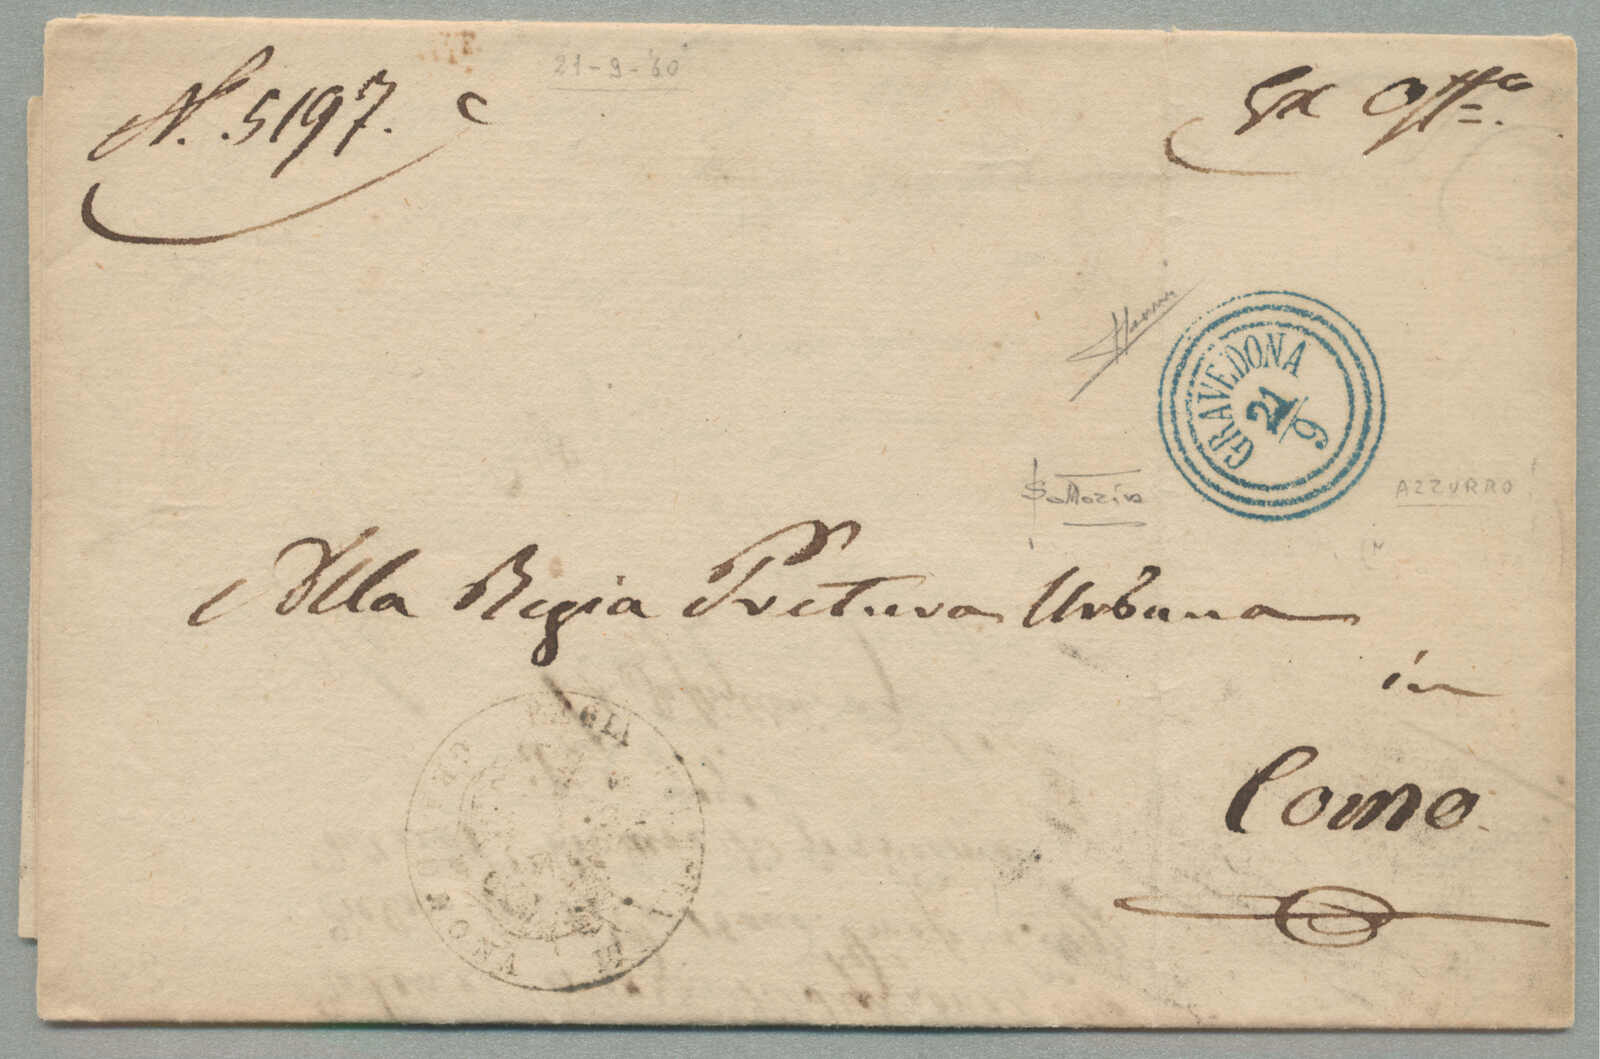 21-9-'60
N. 5197.
Ex Off.º
GRAVEDONA
21/9
AZZURRO
Alla Regia Pretura Urbana
in
Como
REGIA